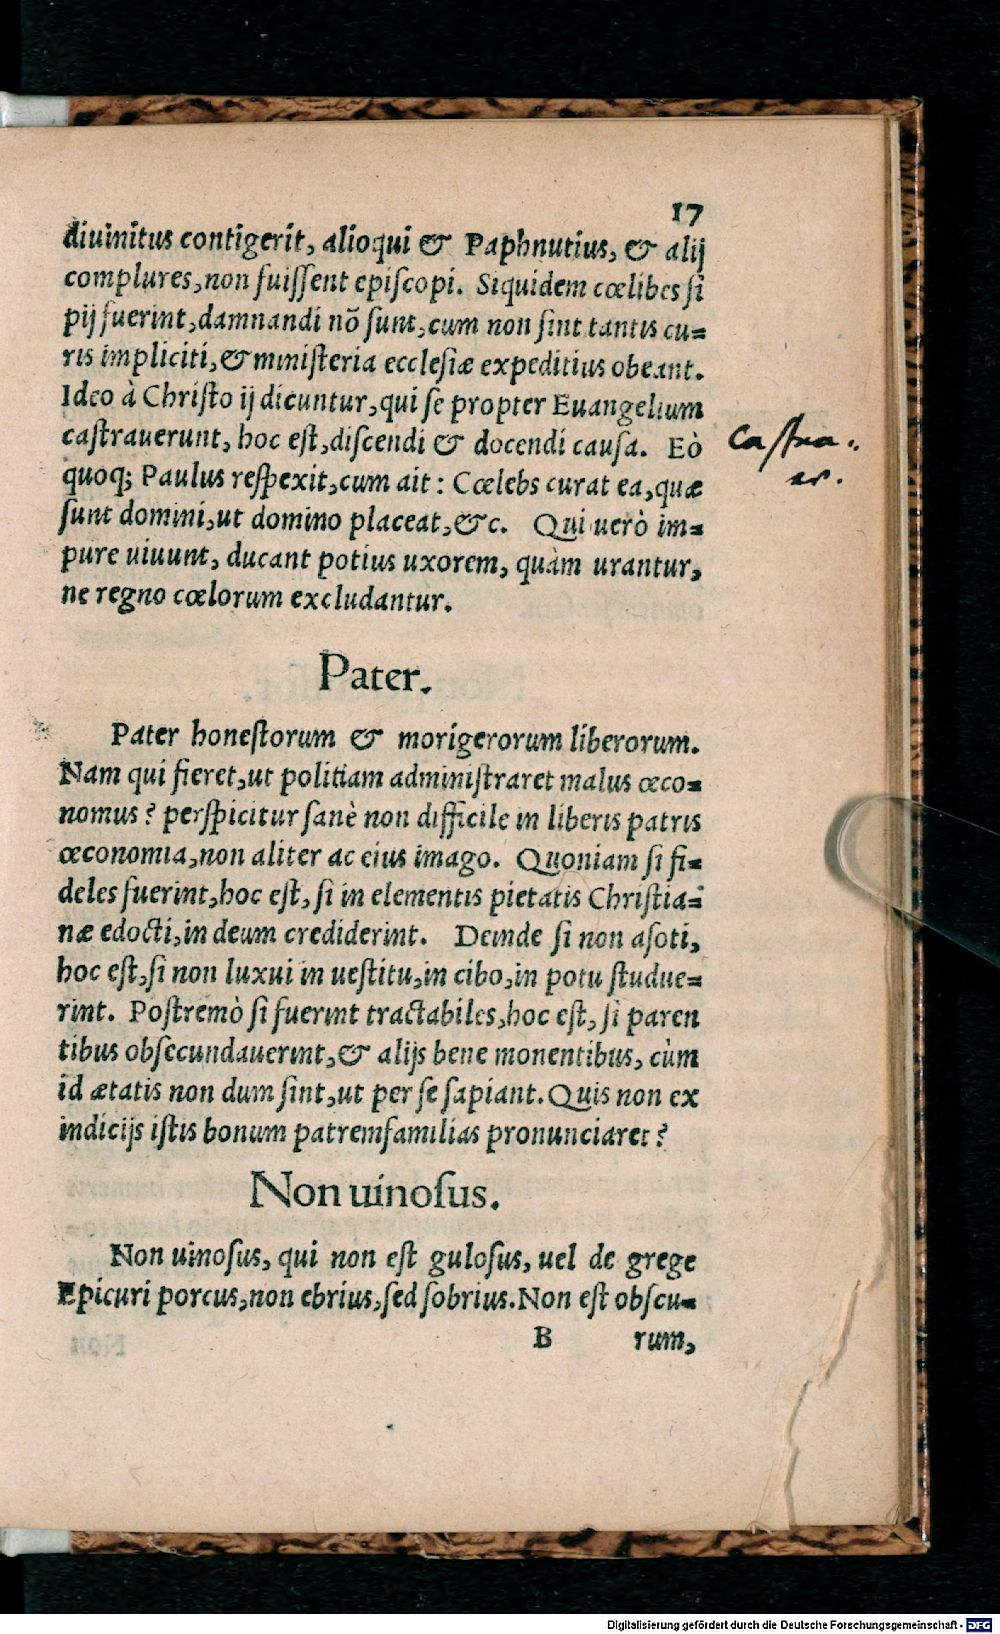 17
diuinitus contigerit, alioqui & Paphnutius, & alij
complures, non fuiſſent epiſcopi. Siquidem cœlibes ſi
pij fuerint, damnandi nõ ſunt, cum non ſint tantis cu-
ris impliciti, & miniſteria eccleſiæ expeditius obeant.
Ideo à Chriſto ij dicuntur, qui ſe propter Euangelium
caſtrauerunt, hoc eſt, diſcendi & docendi cauſa. Eò
quoq; Paulus reſpexit, cum ait: Cœlebs curat ea, quæ
ſunt domini, ut domino placeat, &c. Qui uerò im-
pure uiuunt, ducant potius uxorem, quàm urantur,
ne regno cœlorum excludantur.
Caſtra.
Pater.
Pater honeſtorum & morigerorum liberorum.
Nam qui fieret, ut politiam adminiſtraret malus œco-
nomus? perſpicitur ſanè non difficile in liberis patris
œconomia, non aliter ac eius imago. Quoniam ſi fi-
deles fuerint, hoc eſt, ſi in elementis pietatis Chriſtia-
næ edocti, in deum crediderint. Deinde ſi non aſoti,
hoc eſt, ſi non luxui in ueſtitu, in cibo, in potu ſtudue-
rint. Poſtremò ſi fuerint tractabiles, hoc eſt, ſi paren
tibus obſecundauerint, & alijs bene monentibus, cùm
id ætatis non dum ſint, ut per ſe ſapiant. Quis non ex
indicijs iſtis bonum patremfamilias pronunciaret?
Non uinoſus.
Non uinoſus, qui non eſt guloſus, uel de grege
Epicuri porcus, non ebrius, ſed ſobrius. Non eſt obſcu-
B rum,
Digitalisierung gefördert durch die Deutsche Forschungsgemeinschaft - DFG